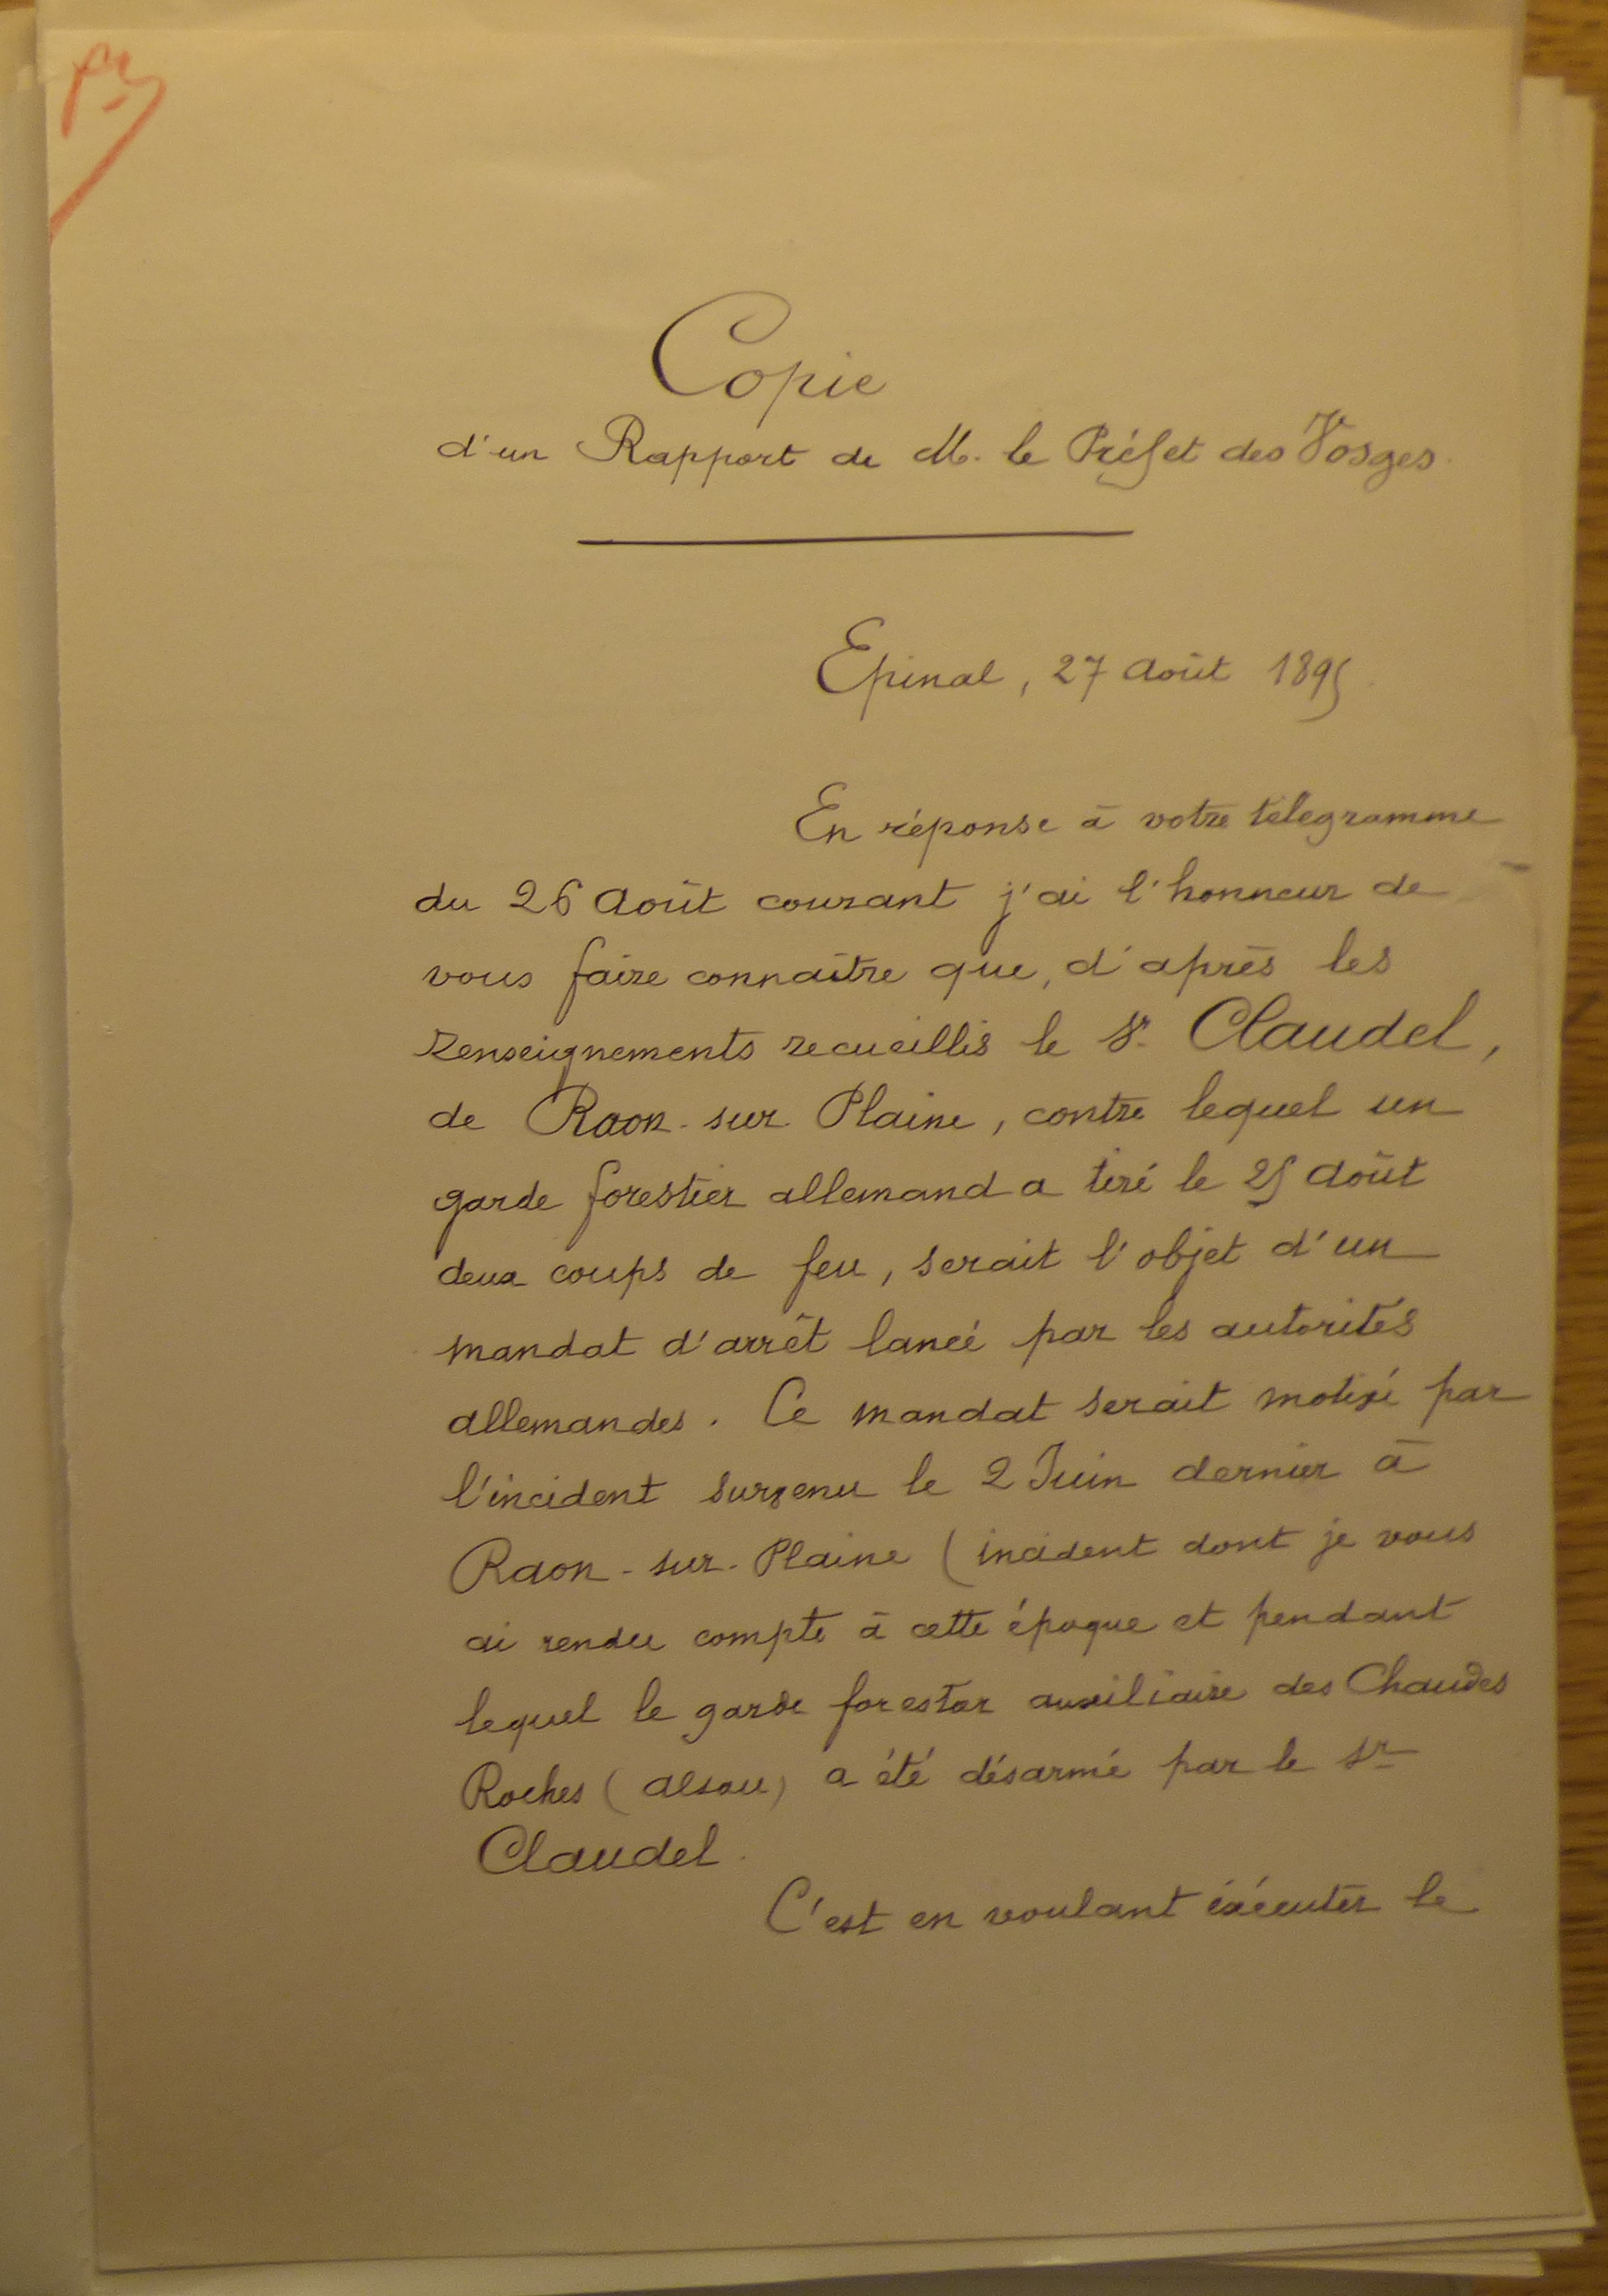 Copie
d'un Rapport de M. le Préfet des Vosges.
Epinal, 27 Août 1895.
En réponse à votre télegramme
du 26 Août courant j'ai l'honneur de
vous faire connaître que, d'après les
renseignements recueillis le Sr. Claudel,
de Raon-sur-Plaine, contre lequel un
garde forestier allemand a tiré le 25 Août
deux coups de feu, serait l'objet d'un
mandat d'arrêt lancé par les autorités
allemandes. Ce mandat serait motivé par
l'incident survenu le 2 Juin dernier à
Raon-sur-Plaine (incident dont je vous
ai rendu compte à cette époque et pendant
lequel le garde forestier auxiliaire des Chaudes
Roches (alsace) a été désarmé par le Sr
Claudel.
C'est en voulant éxécuter le